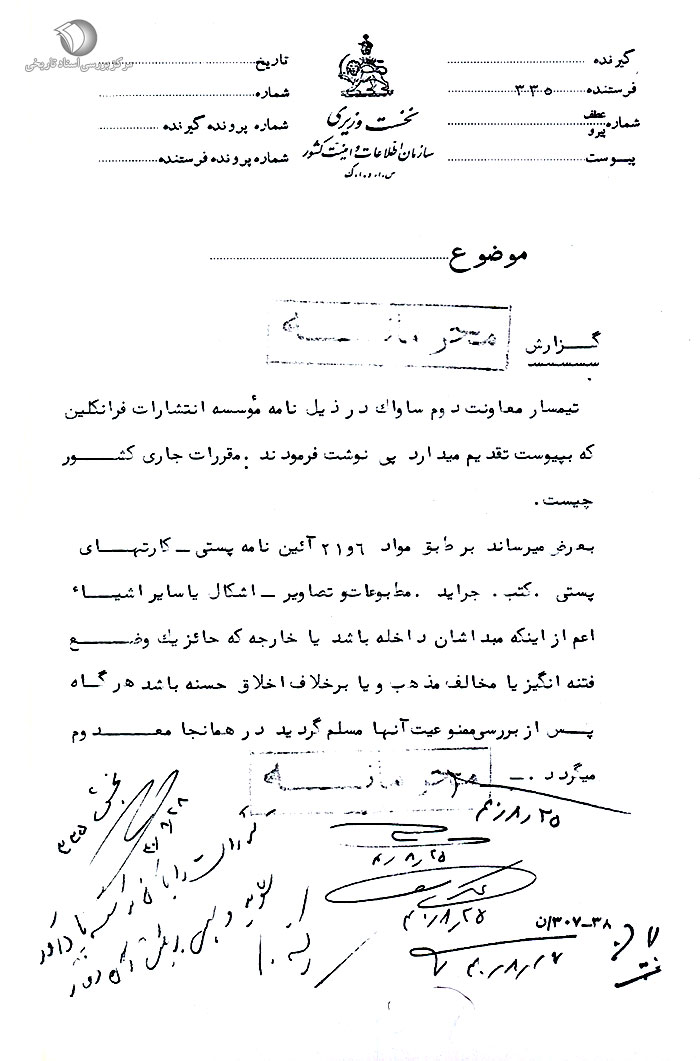 مرکز بررسی اسناد تاریخی
گیرنده
فرستنده ۳۳۵
شماره عطف پیرو
پیوست
نخست وزیری
سازمان اطلاعات و امنیت کشور
س.ا.و.ا.ک
تاریخ
شماره
شماره پرونده گیرنده
شماره پرونده فرستنده
موضوع
محرمانه
گزارش
تیمسار معاونت دوم ساواك در ذیل نامه مؤسسه انتشارات فرانکلین
که بپیوست تقدیم میدارد پی نوشت فرمودند .مقررات جاری کشور
چیست.
بعرض میرساند بر طبق مواد ۶و۲۱ آئین نامه پستی ـ کارتهای
پستی . کتب . جراید . مطبوعات و تصاویر ـ اشکال یا سایر اشیاء
اعم از اینکه مبداشان داخله باشد یا خارجه که حائز یك وضع
فتنه انگیز یا مخالف مذهب و یا برخلاف اخلاق حسنه باشد هرگاه
پس از بررسی ممنوعیت آنها مسلم گردید در همانجا معدوم
میگردد .ـ
محرمانه
بخش ۳۳۵
۴۰/۸/۲۸
۴۰/۸/۲۵
۴۰/۸/۲۵
۴۰/۸/۲۵
۳۰۷-۳۸/ن
۴۰/۸/۲۷